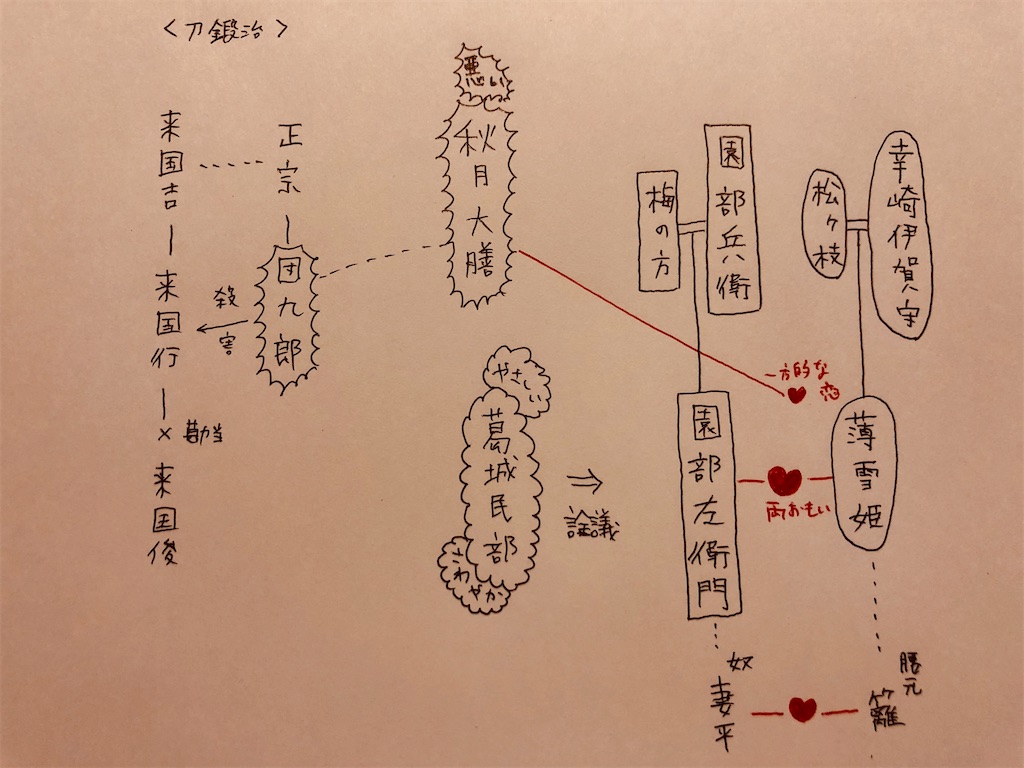 ＜刀鍛冶＞
来国吉
正宗
団九郎
殺害
来国行
勘当
来国俊
悪い
秋月大膳
やさしい
葛城民部
さわやか
詮議
園部兵衛
梅の方
幸崎伊賀守
松ヶ枝
一方的な
恋
園部左衛門
両おもい
薄雪姫
奴
妻平
腰元
籬